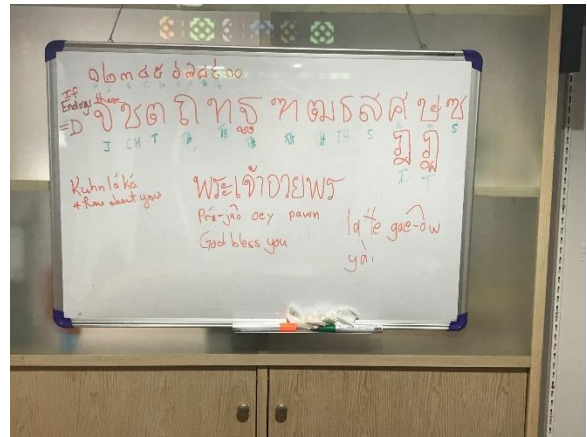 ๑ ๒ ๓ ๔ ๕ ๖ ๗ ๘ ๙ ๑๐
If Ending these =D
จ ช ต ถ ท ธ ฑ ฒ ร ส ศ ษ ซ
J CH T TH TH TH TH TH S S S S
ฎ ฏ
T T
Kuhn lá ká
& How about you
พระเจ้าอวยพร
Prá-jâo oey pawn
God bless you
la te gâe-ôw
yài